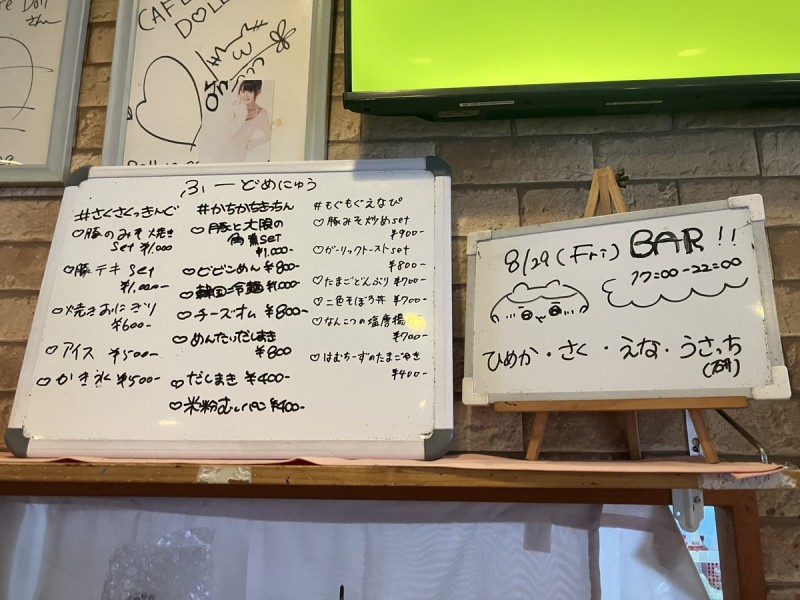 CAFE
DOLL
さん
ふーどめにゅう
#さくさくっきんぐ
♡豚のみそ焼き
set ¥1,000
♡豚テキ set
¥1,000-
♡焼きおにぎり
¥600-
♡アイス ¥500-
♡かき氷 ¥500-
#かちかちきっちん
♡豚と大根の
角煮set
¥1,000-
♡ビビンめん ¥800
♡韓国冷麺 ¥1,000
♡チーズオム ¥800-
♡めんたいだしまき
¥800
♡だしまき ¥400-
♡米粉むしパン ¥400-
#もぐもぐえなぴ
♡豚みそ炒めset
¥900-
♡ガーリックトーストset
¥800-
♡たまごどんぶり ¥700-
♡二色そぼろ丼 ¥700-
♡なんこつの塩唐揚
¥700-
♡はむちーずのたまごやき
¥400-
8/29 (Fri) BAR!!
17:00-22:00
ひめか・さく・えな・うさっち